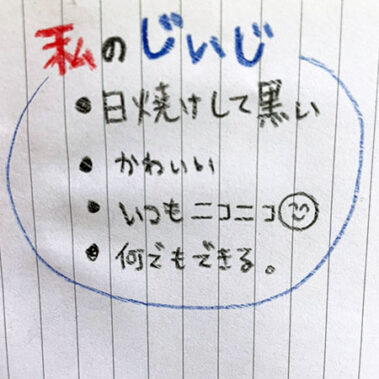 私のじぃじ
・日焼けして黒い
・かわいい
・いつもニコニコ
・何でもできる。